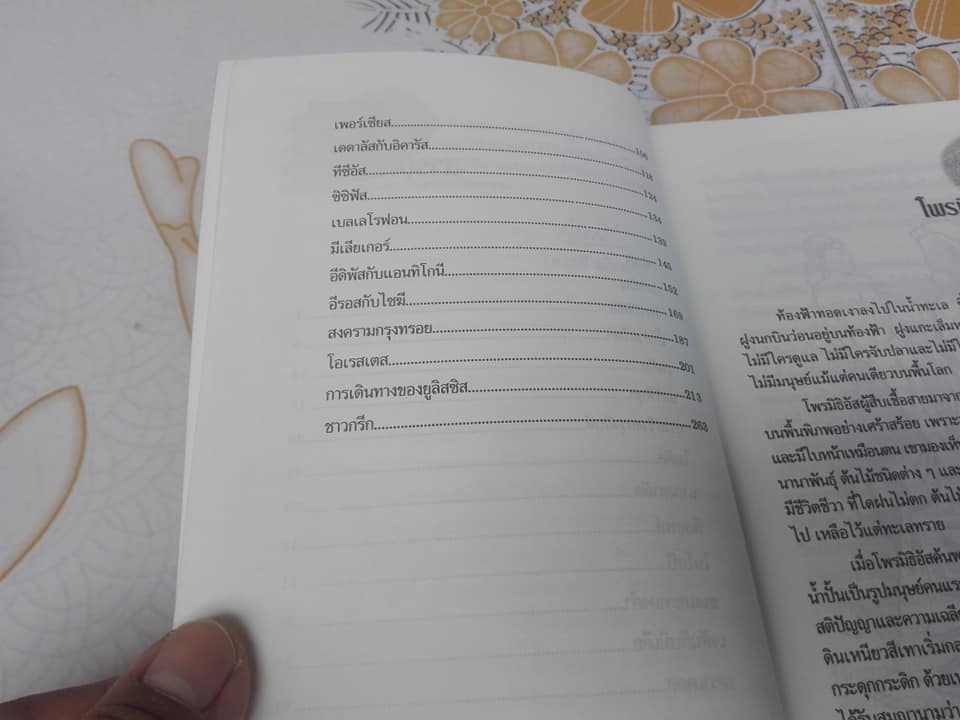 เพอร์เซียส....................106
เดดาลัสกับอิคารัส....................118
ทีซีอัส....................124
ซิซิฟัส....................134
เบลเลโรฟอน....................139
มีเลียเกอร์....................145
อีดิพัสกับแอนทิโกนี....................152
อีรอสกับไซฆี....................169
สงครามกรุงทรอย....................187
โอเรสเตส....................201
การเดินทางของยูลิสซิส....................213
ชาวกรีก....................263
ท้องฟ้าทอดเงาลงไปในน้ำทะเล
ฝูงนกบินว่อนอยู่บนท้องฟ้า ฝูงแกะเล็ม
ไม่มีใครดูแล ไม่มีใครจับปลาและไม่มี
ไม่มีมนุษย์แม้แต่คนเดียวบนพื้นโลก
โพรมิธิอัสผู้สืบเชื้อสายมาจาก
บนพื้นพิภพอย่างเศร้าสร้อย เพราะ
และมีใบหน้าเหมือนตน เขามองเห็น
นานาพันธุ์ ต้นไม้ชนิดต่าง ๆ และ
มีชีวิตชีวา ที่ใดฝนไม่ตก ต้นไม้
ไป เหลือไว้แต่ทะเลทราย
เมื่อโพรมิธิอัสค้นพบ
น้ำปั้นเป็นรูปมนุษย์คนแรก
สติปัญญาและความเฉลียว
ดินเหนียวสีเทาเริ่ม
กระดุกกระดิก ด้วย
ได้รับสมญานามว่า